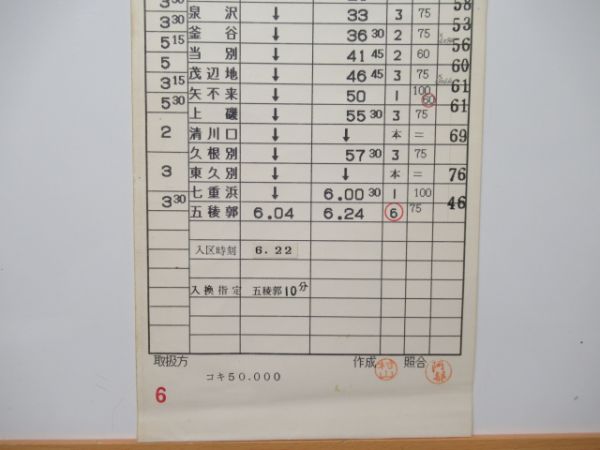 3 30 泉沢 ↓ 33 3 75 58
3 30 釜谷 ↓ 36 30 2 75 53
5 15 当別 ↓ 41 45 2 60 56
5 茂辺地 ↓ 46 45 3 75 60
3 15 矢不来 ↓ 50 1 100 60 61
5 30 上磯 ↓ 55 30 3 75 61
2 清川口 ↓ ↓ 本 = 69
久根別 ↓ 57 30 3 75
3 東久別 ↓ ↓ 本 = 76
七重浜 ↓ 6.00 30 1 100
3 30 五稜郭 6.04 6.24 6 75 46
入区時刻 6.22
入換指定 五稜郭10分
取扱方 作成 村山 照合 阿部
コキ50.000
6